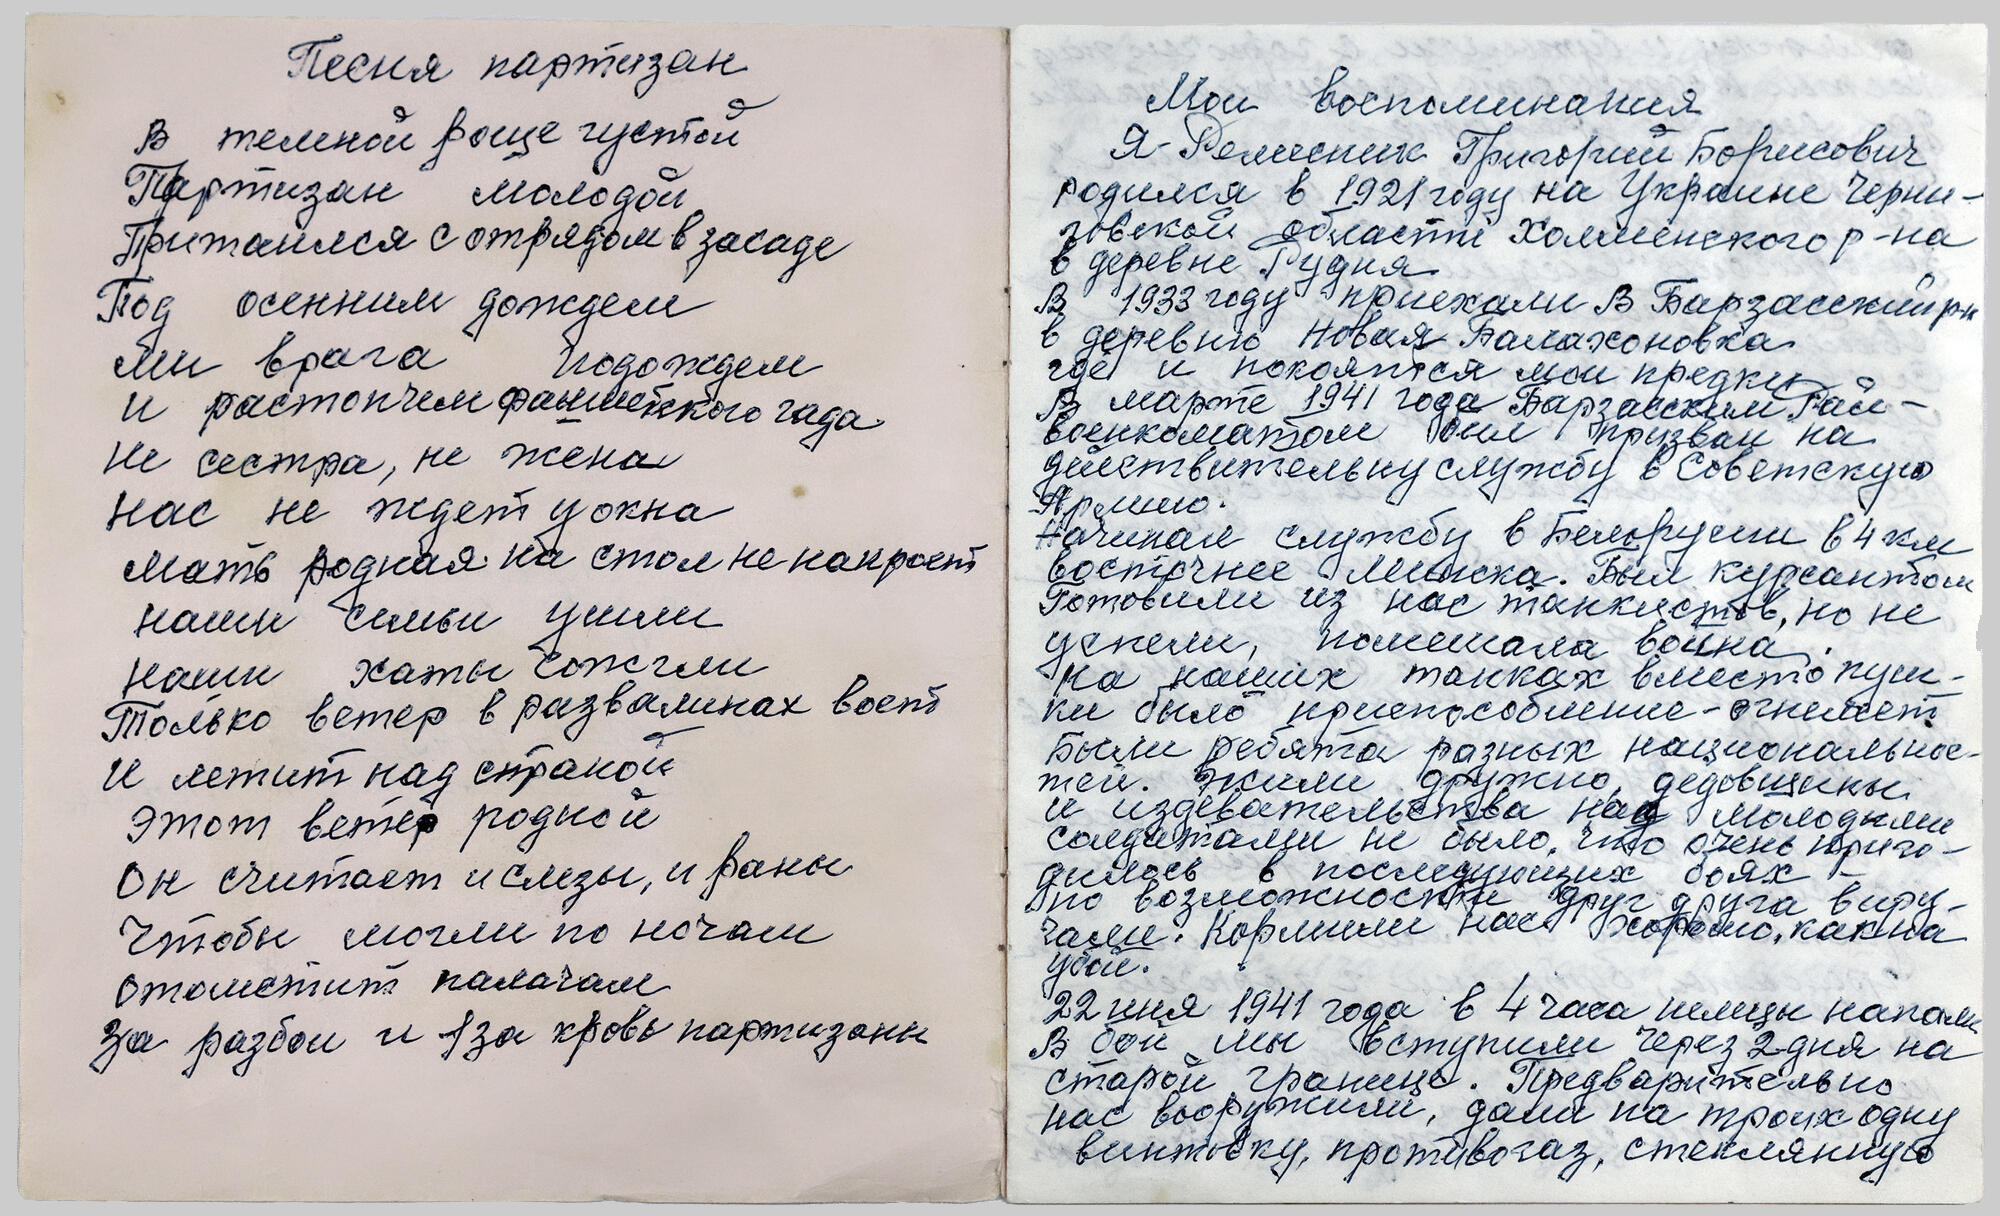 Песня партизан
В темной роще густой
Партизан молодой
Притаился с отрядом в засаде
Под осенним дождем
мы врага подождем
и растопчем фашистского гада.
Не сестра, не жена
нас не ждет у окна
мать родная на стол не накроет
наши семьи ушли
наши хаты сожгли
Только ветер в развалинах воет
И летит над страной
этот ветер родной
Он считает и слезы, и раны
Чтобы могли по ночам
отомстит палачам
за разбои и за кровь партизаны
Мои воспоминания
Я- Ремесник Григорий Борисович
родился в 1921 году на Украине Черни-
говской области Холменского р-на
в деревне Рудня.
В 1933 году приехали в Барзасский р-н
в деревню Новая Балахоновка
где и покоятся мои предки
В марте 1941 года Барзасским Рай-
военкоматом был призван на
действительну службу в Советскую
Армию.
Начинал службу в Белорусии в 4 км
восточнее Минска. Был курсантом
Готовили из нас танкистов, но не
успели, помешала война.
На наших танках вместо пуш-
ки было приспособление-огнемет
Были ребята разных национальнос-
тей. Жили дружно, дедовщины
и издевательства над молодыми
солдатами не было. Что очень приго-
дилось в последующих боях -
по возможности друг друга выру-
чали. Кормили нас хорошо, как на
убой.
22 июня 1941 года в 4 часа немцы напали
В бой мы вступили через 2-дня на
старой границе. Предварительно
нас вооружили, дали на троих одну
винтовку, противогаз, стеклянную